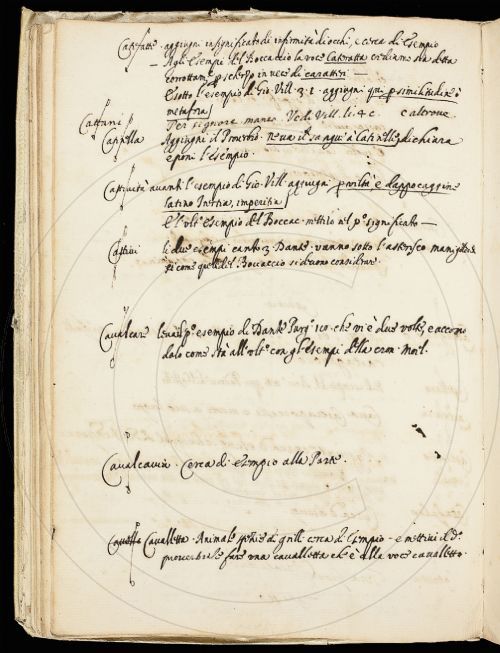 Cateratte. aggiugni in significato di infirmità di occhi, e cerca di esempio
— Agli esempi del Boccaccio la voce Cateratta crediamo sia detta
corrottam. p scherzo in vece di caratteri —
E sotto l'esempio di Gio. Vill. 3. 1. aggiugni qui p similitudine
metafora
Per signore manca Ved. Vill. li. 4 c. e altrove
Cappella Aggiugni il Proverbio. Ne va il sangue a Catinelle, e dichiara
e poni l'esempio.
Cattività avanti l'esempio di Gio. Vill. aggiugni p viltà e dappocaggine
latino Inertia, imperitia
E l'ulto. esempio del Boccac. mettilo nel po. significato —
Cattivi li due esempi cant. 3. Dante. vanno sotto l'asterisco
si come quel del Boccaccio si devono considerare.
Cavalcare levisi il po. esempio di Dante Purg. che vi è due volte, e accomo
dalo come sta all'ulto. con gl'esempi della cron. Mor.
Cavalcavia. Cerca di esempio alla Parte.
Cavalletta. Animale spezie di grilli cerca d'esempio. e mettivi il do.
proverbio fare una cavalletta che è alla voce cavalletto.